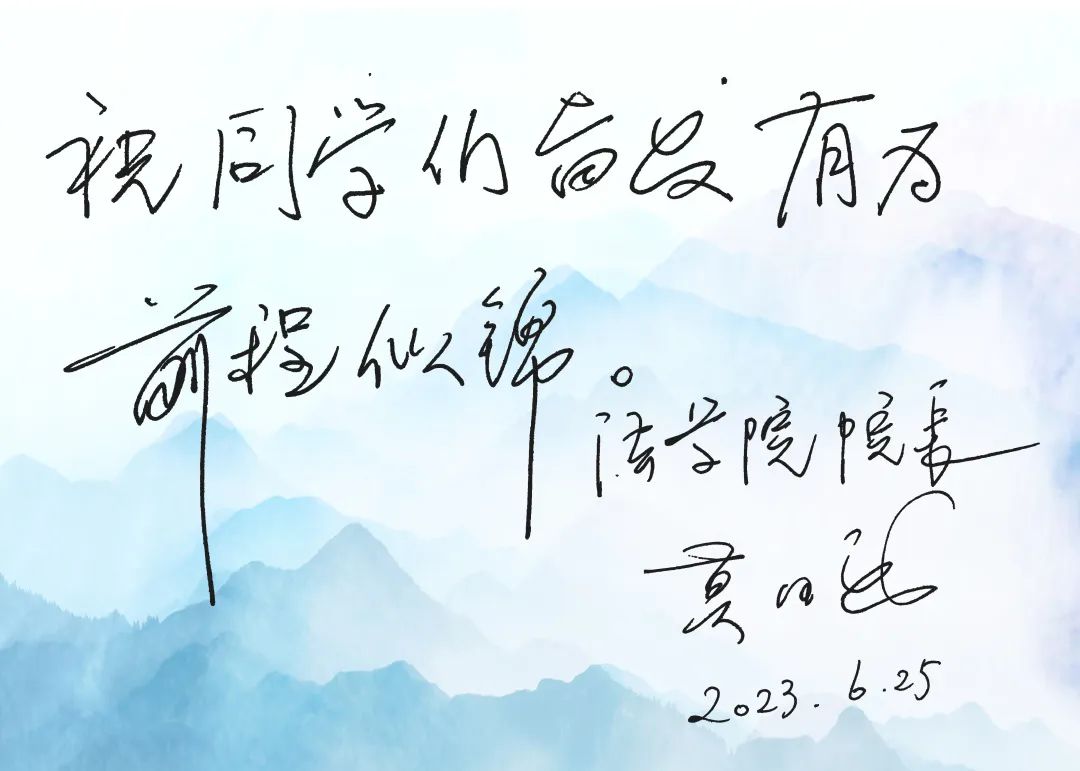 祝同学们奋发有为
前程似锦。
法学院院长
莫
2023.6.25